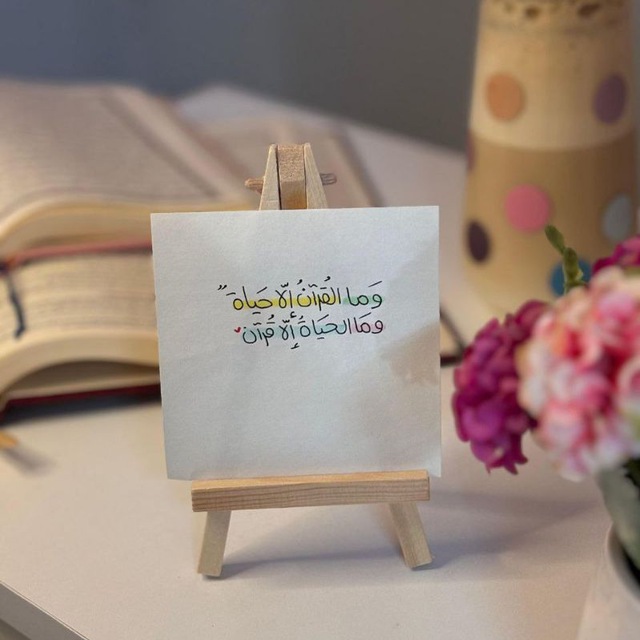 وَما القُرْآنُ إلّا حَياة"
وَمَا الحَيَاةُ إلّا قُرْآن